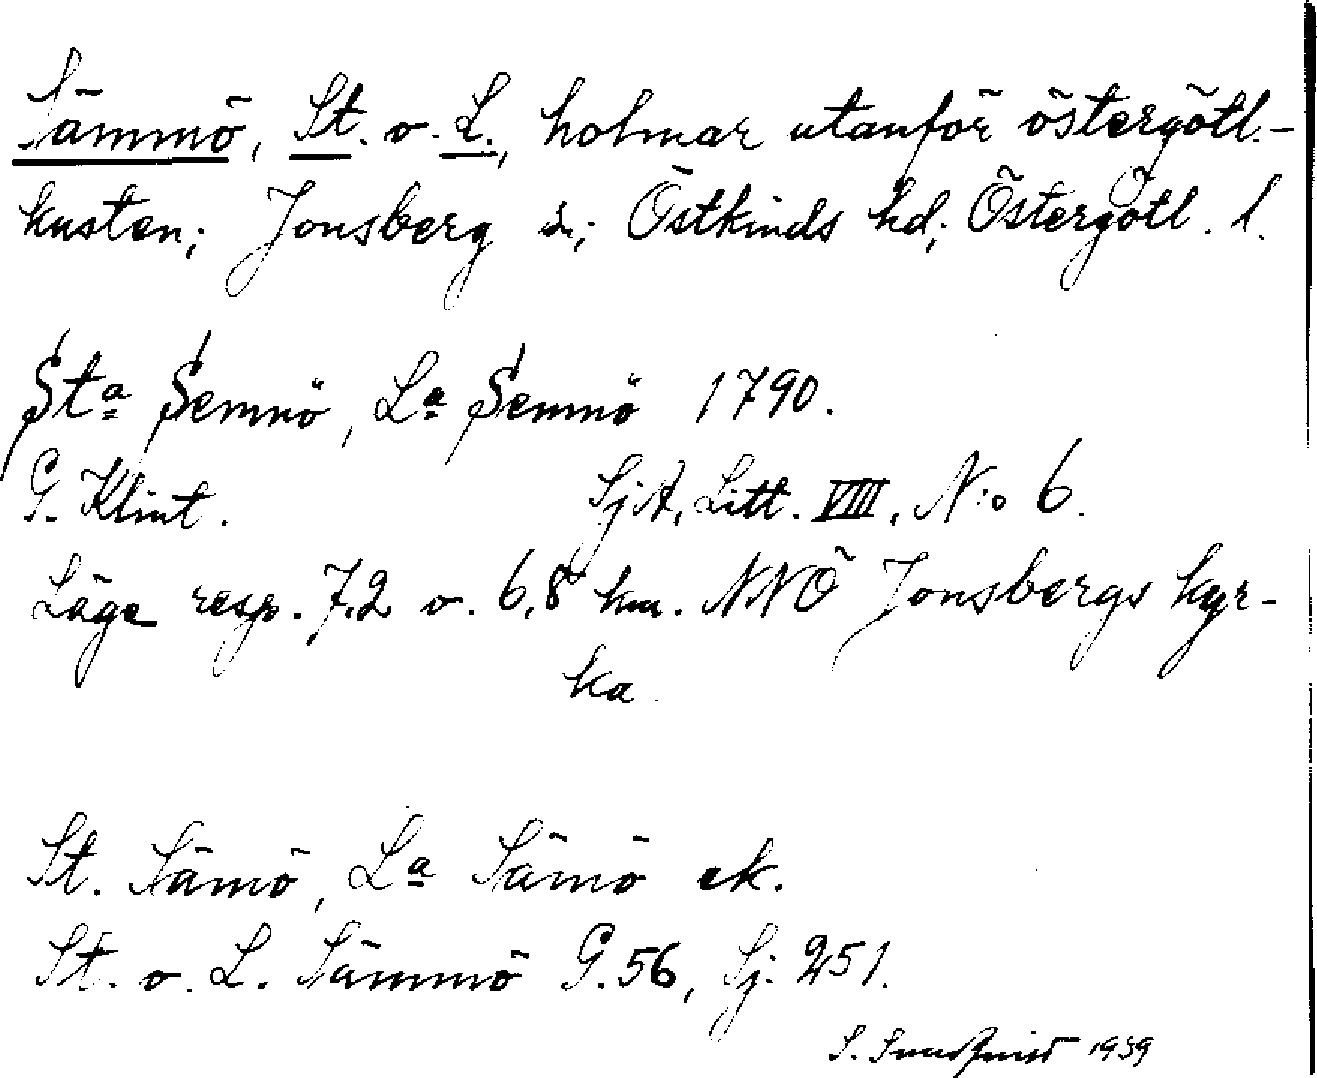 Sämmö, St. o. L., holmar utanför östergötl.-
kusten; Jonsberg s:n; Östkinds hd; Östergötl. l.
Sta Semnö, La Semnö 1790.
G. Klint. SjA, Litt. VIII, N:o 6.
Läge resp. 7,2 o. 6,8 km. NNÖ Jonsbergs kyr-
ka.
St. Sämö, La Sämö ek.
St. o. L. Sämmö G. 56, Sj: 251.
S. Sundquist 1939